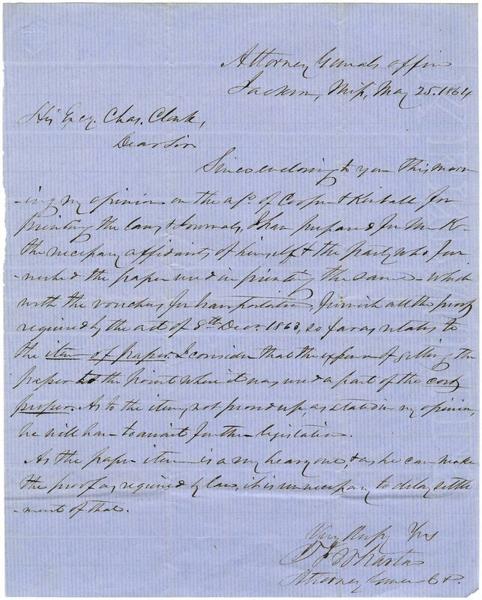 Attorney Genrals office
Jackson, Miss, May 25. 1864
His Excy. Chas. Clark,
Dear Sir
Since enclosing to you this morn
ing my opinion on the a/c of Cooper & Kimball for
printing the laws & Journals, I have prepared for Mr K
the necessary affidavits of himself & the party who fur
nished the paper used in printing the same - which
with the vouchers for transportation, furnish all the proof
required by the act of 8th Decr. 1863, so far as relates to
the item of paper. I consider that the expense of getting the
paper to the point where it was used a part of the cost
proper. As to the items not proved up, as stated in my opinion,
he will have to await further legislation.
As the paper item is a very heavy one, & as he can make
the proof as required by law, it is unnecessary to delay settle
ment of that.
Very Respy Yrs
T J Wharton
Attorney General